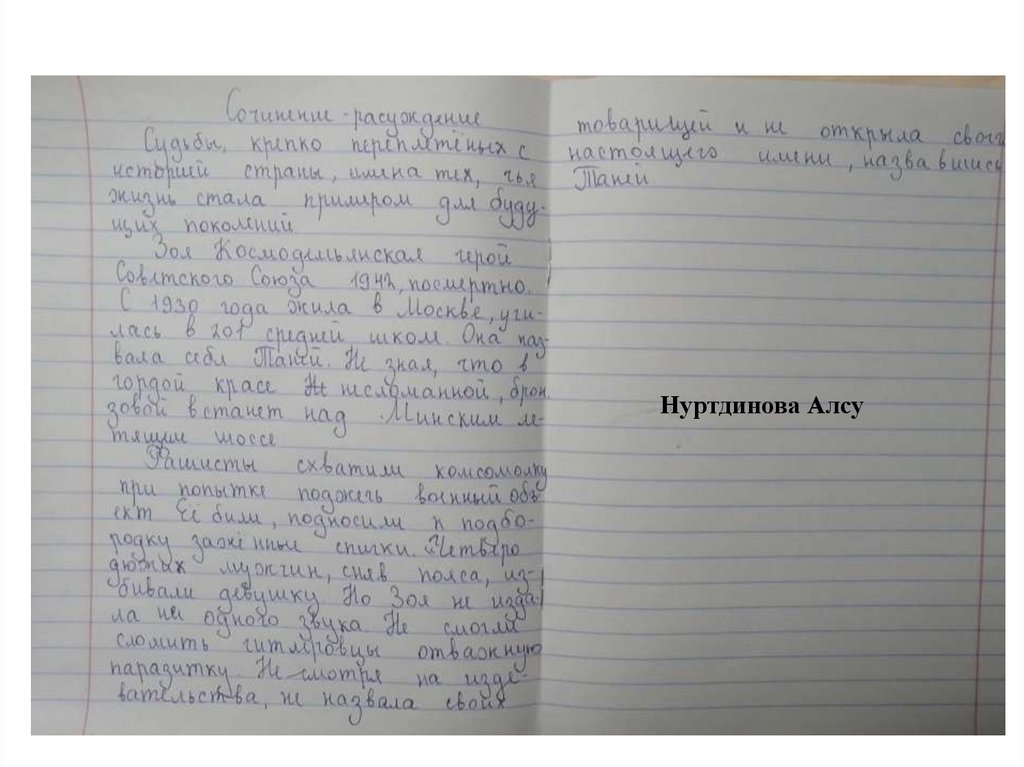 Сочинение-расуждение
Судьбы, крепко переплетёных с
историей страны, имена тех, чья
жизнь стала примером для буду-
щих поколений
Зоя Космодемьянская герой
Советского Союза 1942, посмертно.
С 1930 года жила в Москве, учи-
лась в 201 средней школе. Она наз-
вала себя Таней. Не зная, что в
гордой красе несломанной, брон
зовой встанет над Минским ле-
тящим шоссе
Фашисты схватили комсомолку
при попытке поджечь военный объ-
ект Её били, подносили к подбо-
родку заженные спички. Четверо
дюжых мужчин, сняв пояса, из-
бивали девушку. Но Зоя не изда
ла ни одного звука. Не смогли
сломить гитлеровцы отважную
паразитку. Не смотря на изде-
вательства, не назвала своих
товарищей и не открыла своег
настоящего имени, назвавшись
Таней
Нуртдинова Алсу